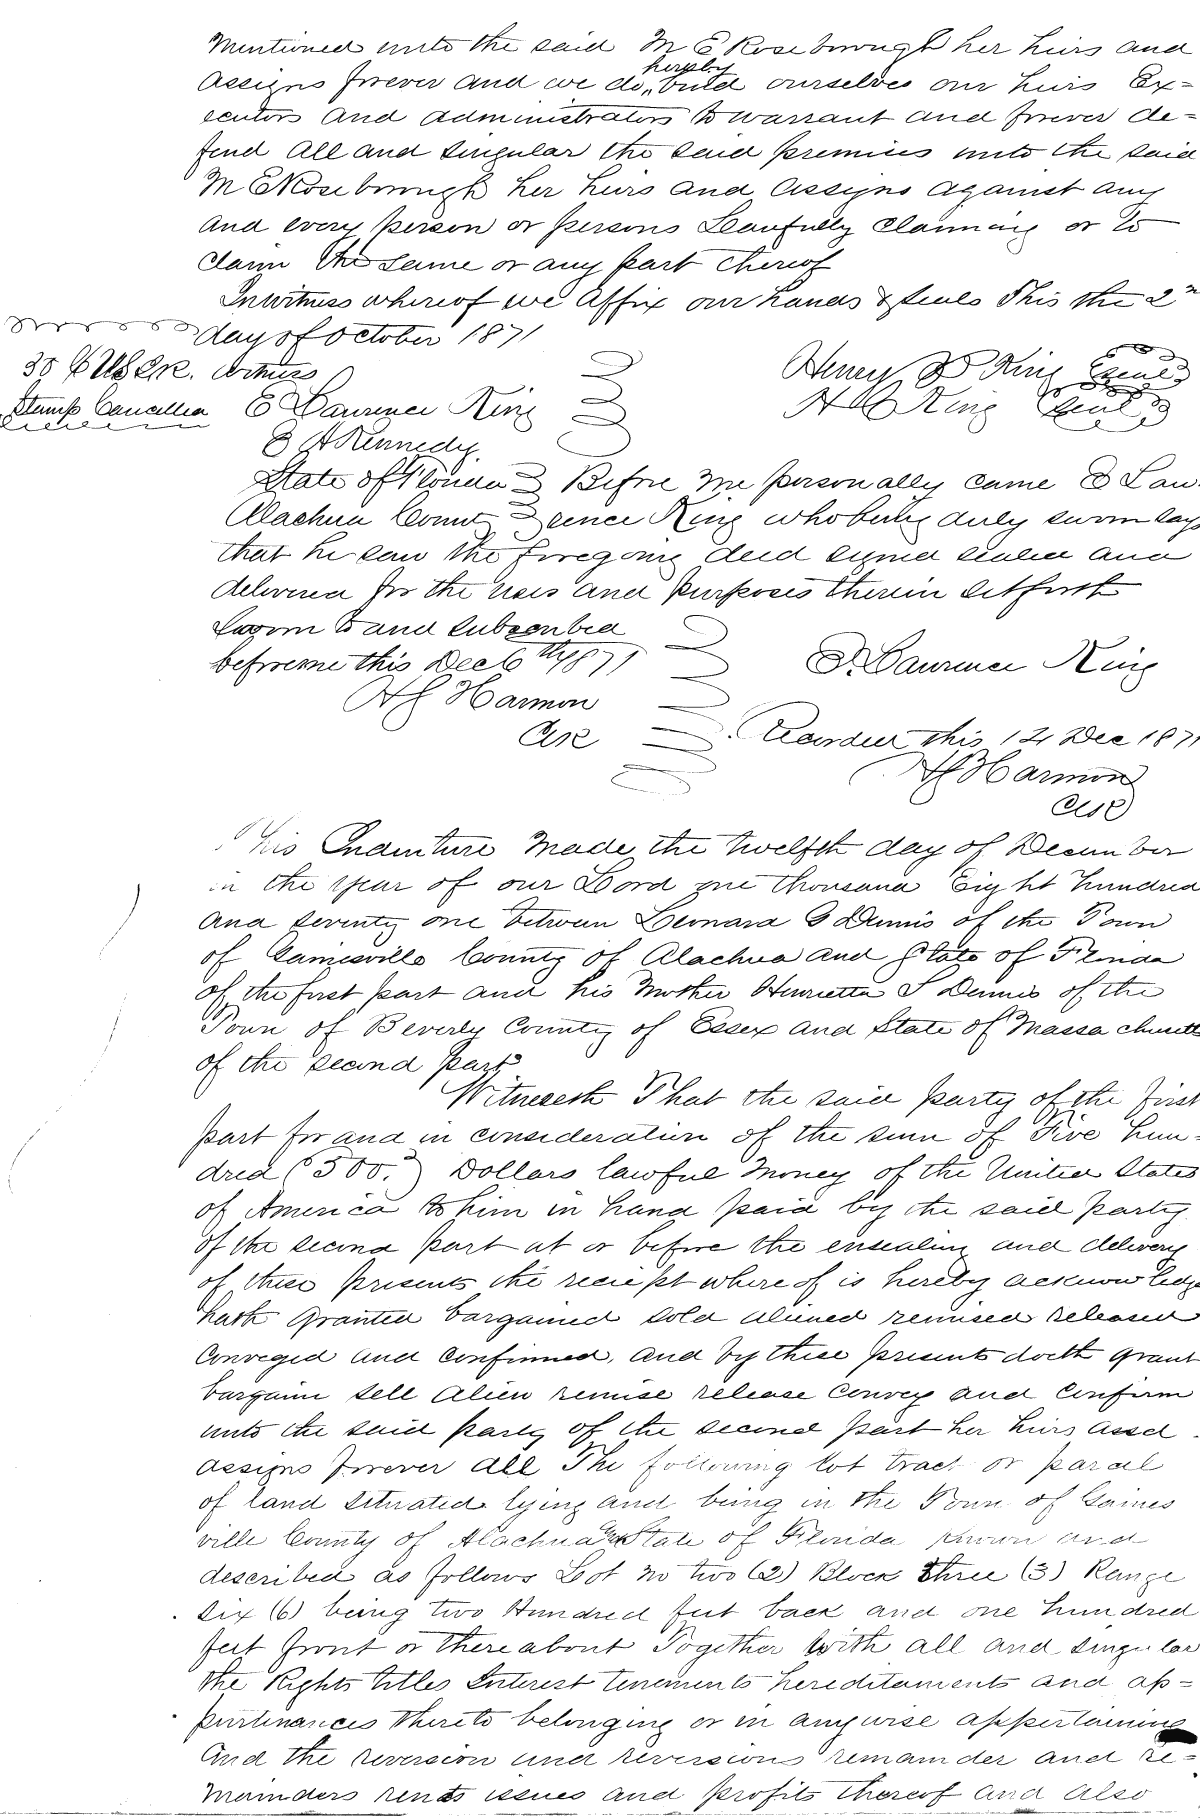 Mentioned unto the said M E Roseborough her heirs and
assigns forever and we do hereby bind ourselves our heirs Ex=
ecutors and administrators to warrant and forever de=
fend all and singular the said premises unto the said
M E Roseborough her heirs and assigns against any
and every person or persons Lawfully claiming or to
claim the same or any part thereof
In witness whereof we affix our hands & seals This the 2n
day of October 1871
30 c US I R. Witness Henry D King Seal
Stamp Cancelled E Lawrence King H C King Seal
E A Kennedy
State of Florida Before me personally came E Law-
Alachua County rence King who being duly sworn says
that he saw the foregoing deed signed sealed and
delivered for the uses and purposes therein set forth
Sworn to and subscribed
before me this Dec 6th 1871 E. Lawrence King
H S Harmon
Clk Recorded this 12 Dec 1871
H S Harmon
Clk
This Indenture Made the twelfth day of December
in the year of our Lord one thousand Eight hundred
and seventy one between Leonard G Dennis of the Town
of Gainesville County of Alachua and State of Florida
of the first part and his Mother Henrietta S Dennis of the
Town of Beverly County of Essex and State of Massachusetts
of the second part
Witnesseth That the said party of the first
part for and in consideration of the sum of Five hun-
dred (500.) Dollars lawful money of the United States
of America to him in hand paid by the said party
of the second part at or before the ensealing and delivery
of these presents the reciept where of is hereby acknowledge
hath granted bargained sold aliened remised released
conveyed and confirmed, and by these presents doth grant
bargain sell alien remise release convey and confirm
unto the said party of the second part her heirs and
assigns forever all The following lot tract or parcel
of land situated lying and being in the Town of Gaines
ville County of Alachua and State of Florida known and
described as follows Lot no two (2) Block three (3) Range
six (6) being two Hundred feet back and one hundred
feet front or there about Together with all and singular
the Rights titles Interest tenements hereditaments and ap=
purtinances thereto belonging or in anywise appertaining
And the reversion and reversions remainder and re=
mainders rents issues and profits thereof and also